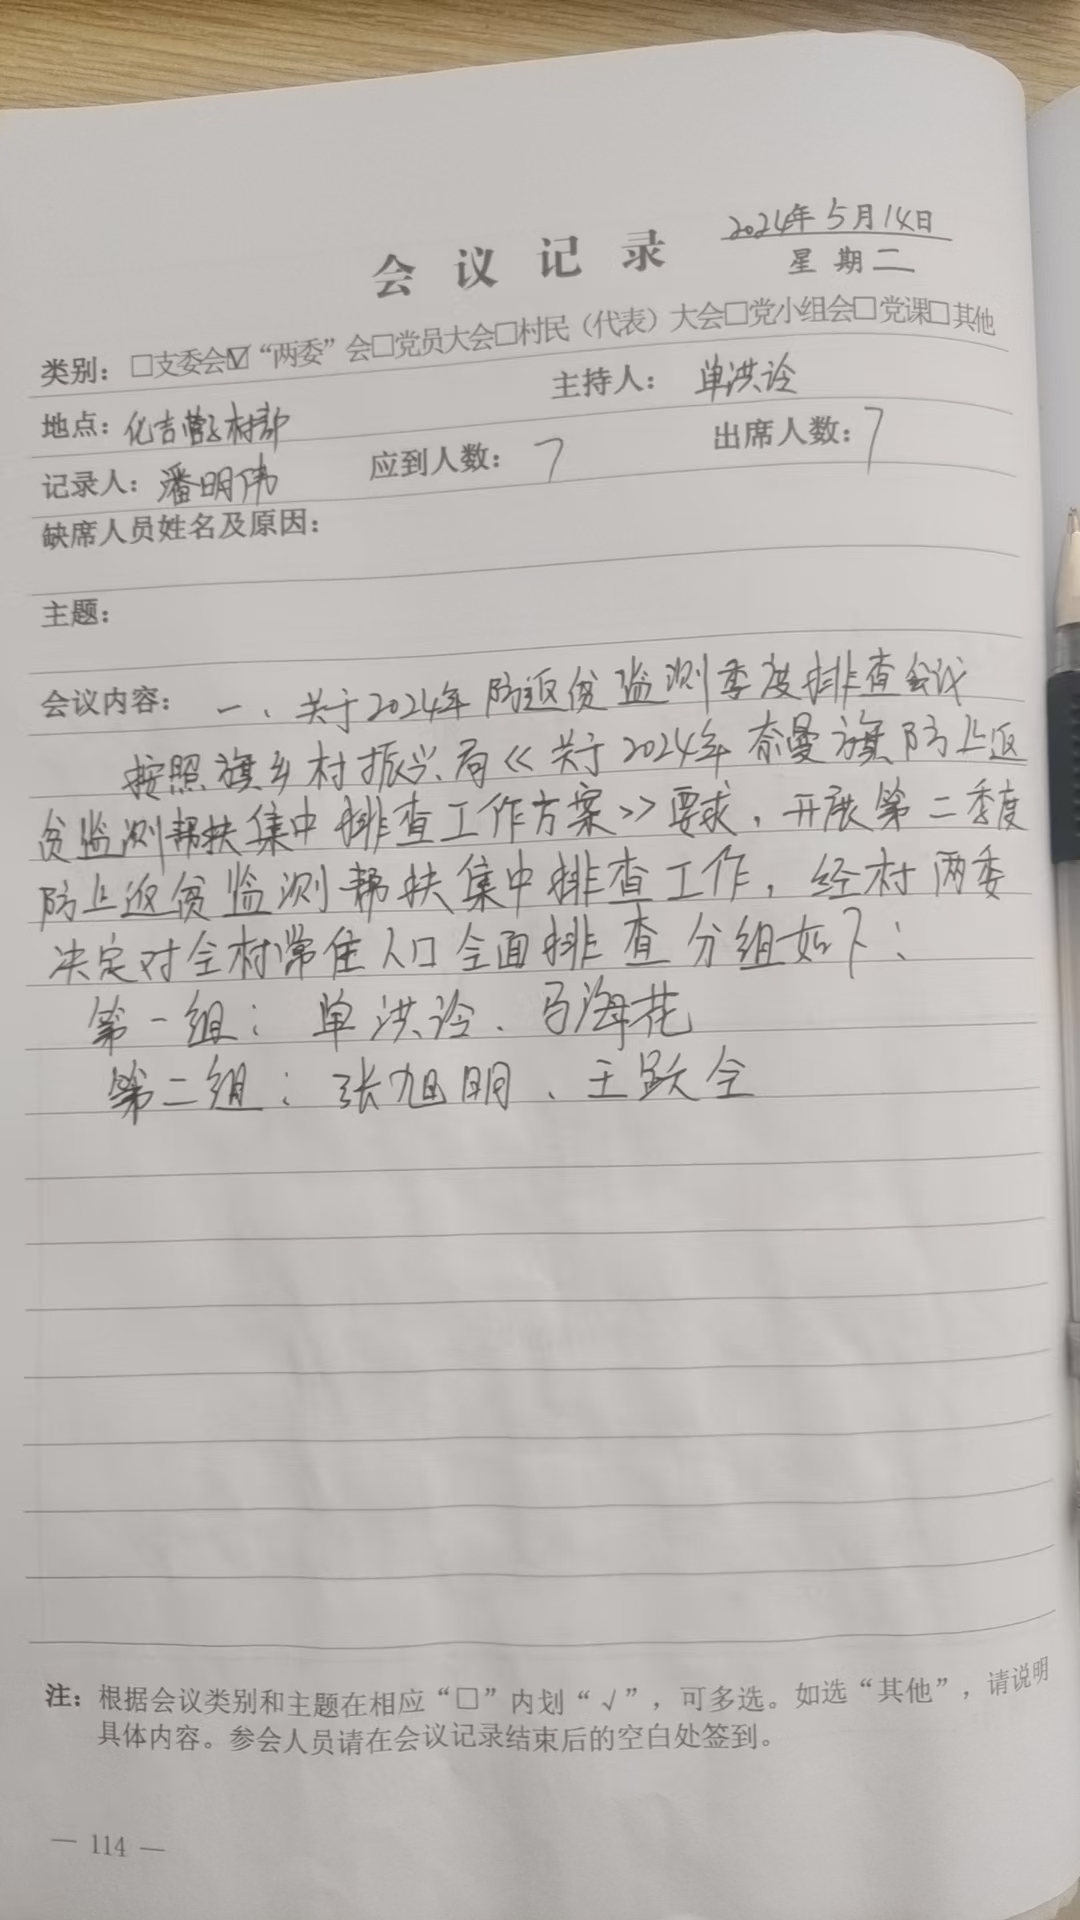 2024年5月14日
会议记录
星期二
类别：□支委会☑“两委”会□党员大会□村民（代表）大会□党小组会□党课□其他
地点：化吉营子村部 主持人：单洪玲
记录人：潘明伟 应到人数：7 出席人数：7
缺席人员姓名及原因：
主题：
会议内容：一、关于2024年防返贫监测季度排查会议
按照旗乡村振兴局《关于2024年奈曼旗防止返
贫监测帮扶集中排查工作方案》要求，开展第二季度
防止返贫监测帮扶集中排查工作，经村两委
决定对全村常住人口全面排查分组如下：
第一组：单洪玲、马海花
第二组：张旭明、王跃全
注：根据会议类别和主题在相应“□”内划“√”，可多选。如选“其他”，请说明
具体内容。参会人员请在会议记录结束后的空白处签到。
— 114 —